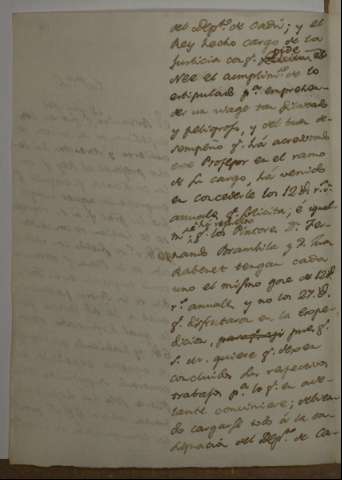 del Dep.to de Cadiz; y el
Rey hecho cargo de la
Justicia con q.e pide
Nee el cumplim.to de lo
estipulado p.a emprehen-
der un viage tan dilatado
y peligroso, y del buen de-
sempeño q.e há acreditado
este Profesor en el ramo
de su cargo, há venido
en concederle los 12 D r.s
anuales q.e solicita, é igual-
m.te há resuelto
q.e los Pintores D.n Fer-
nando Brambila y D. Juan
Rabenet tengan cada
uno el mismo goce de 12 D.
r.s anuales y no los 27 D.
q.e disfrutaron en la Expe-
dicion, pues q.e
S. M. quiere q.e dexen
concluidos los respectivos
trabajos p.a lo q.e en ade-
lante conviniere; debien-
do cargarse todo á la con-
signacion del Dep.to de Ca-